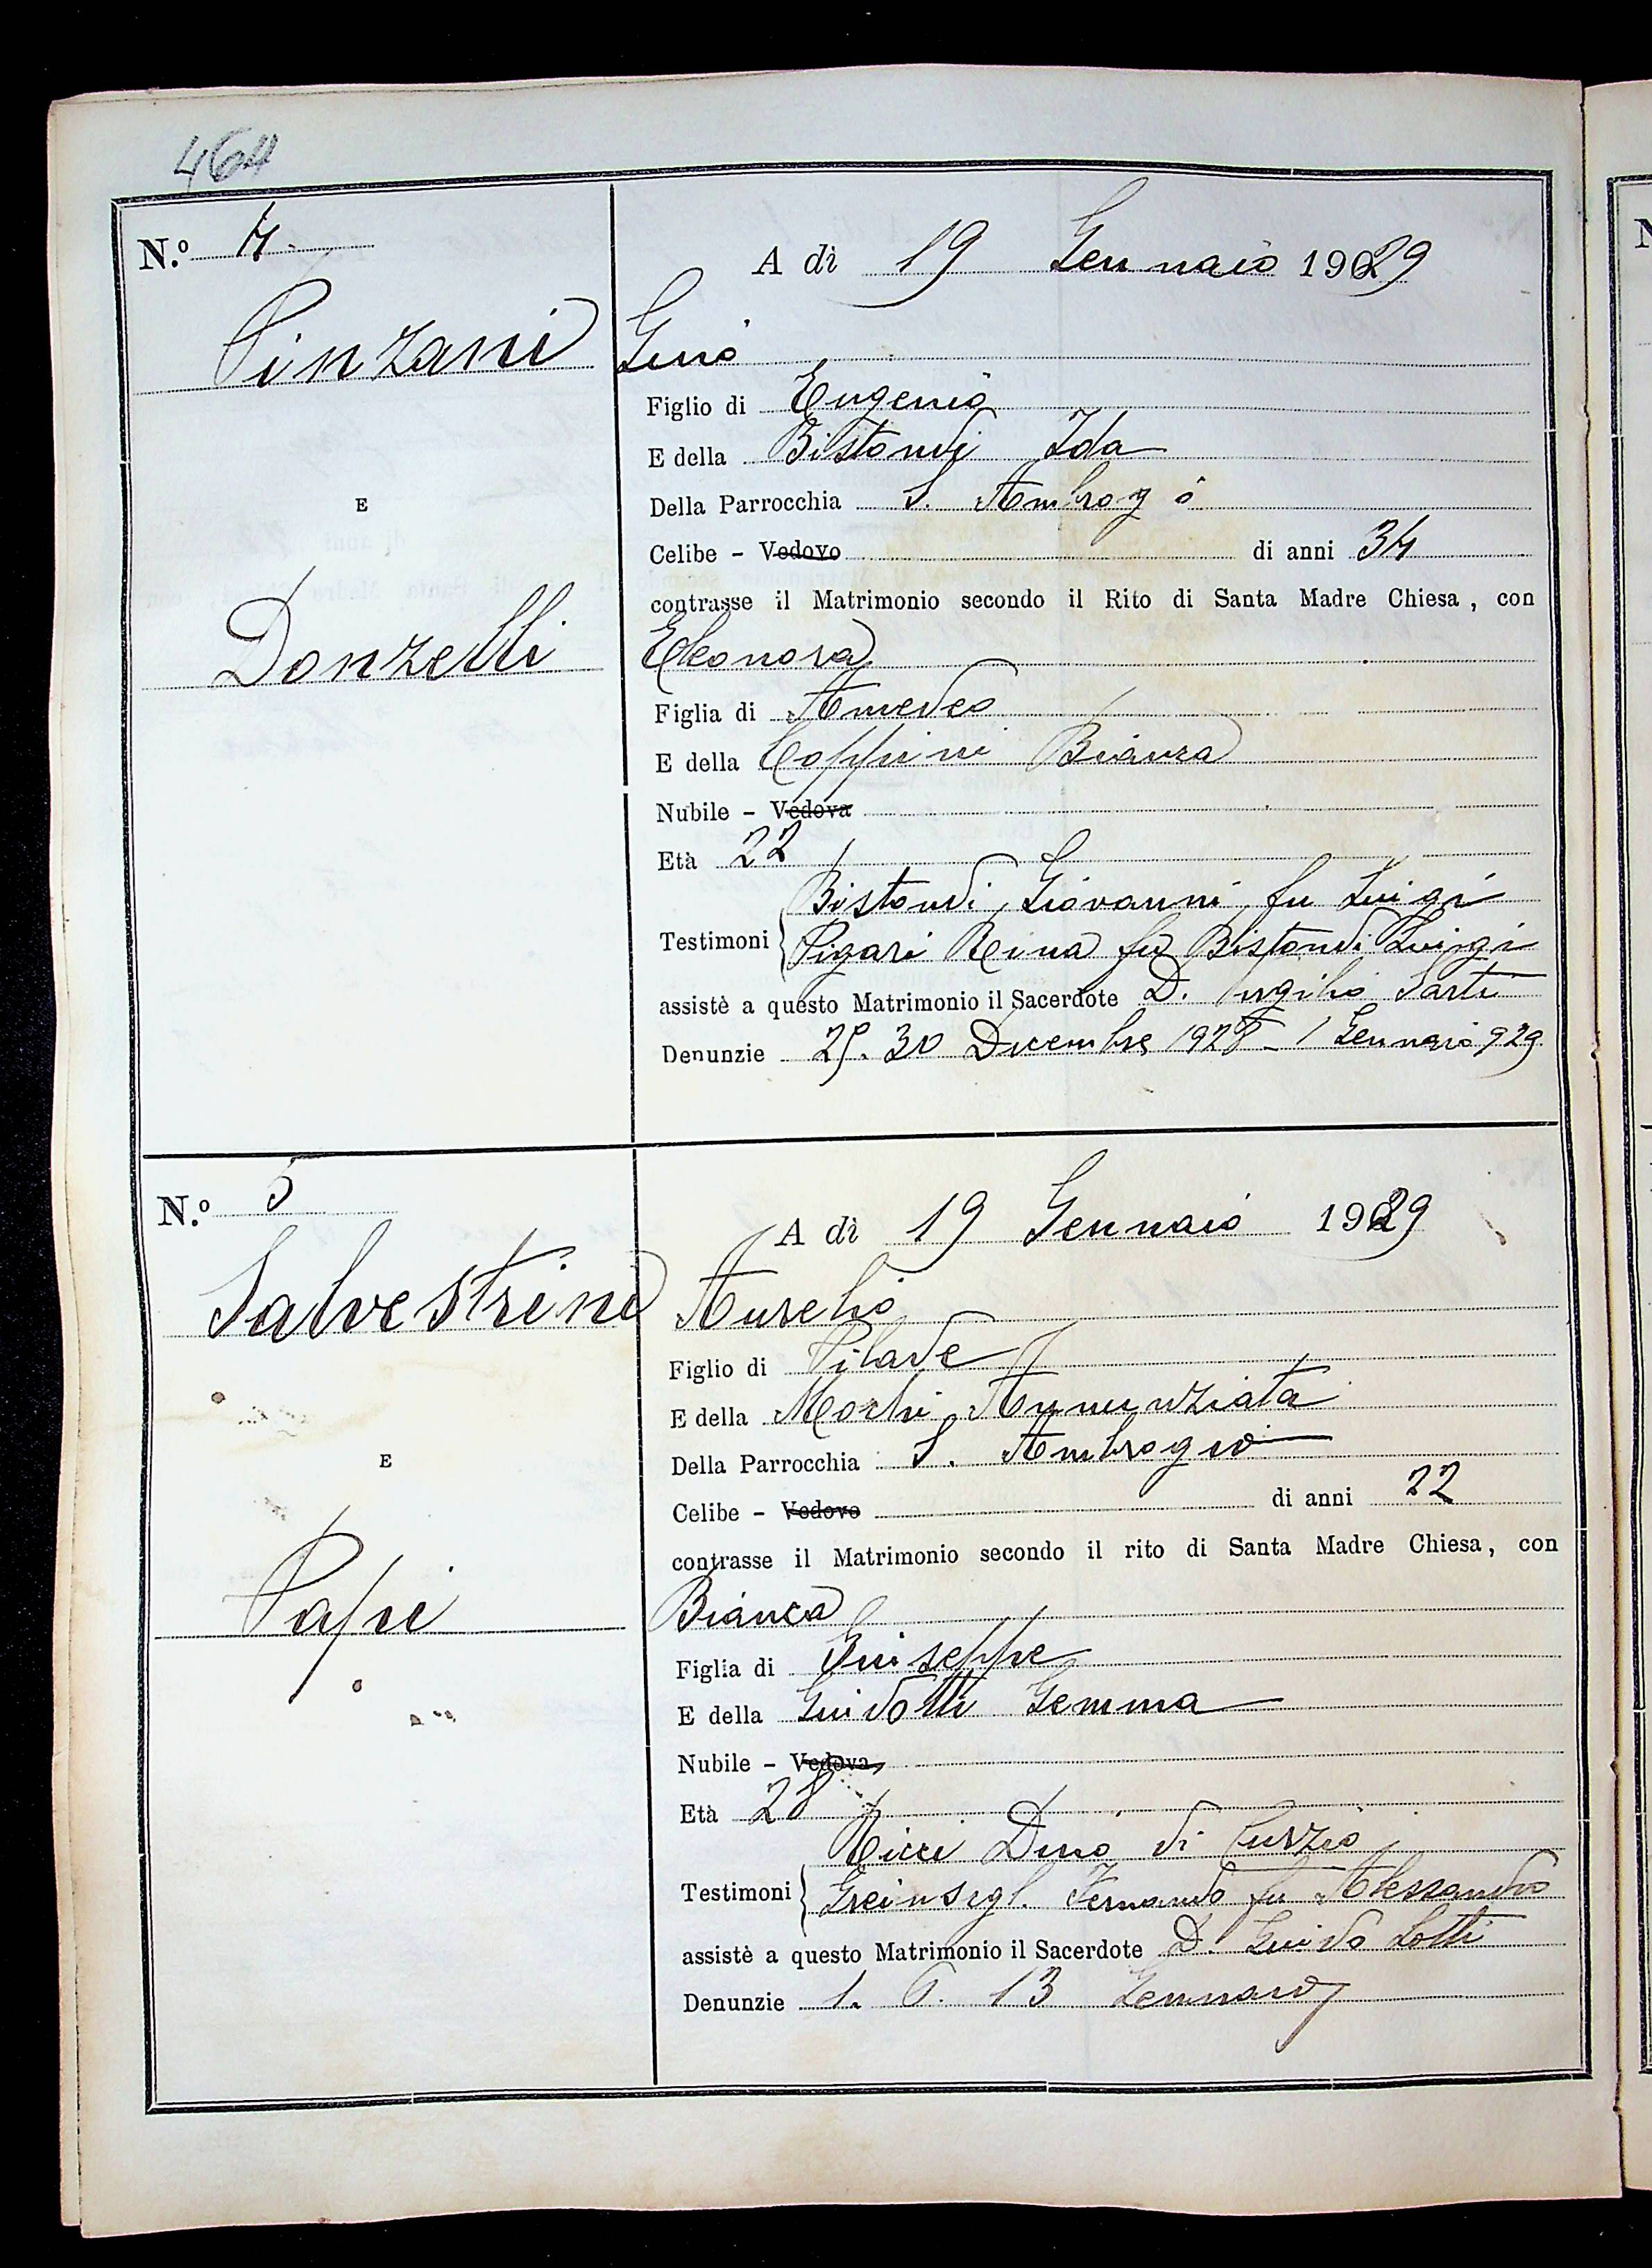 464
N.º 4.
A dì 19 Gennaio 1929
Pinzani Gino
Figlio di Eugenio
E della Bistondi Ida
E
Della Parrocchia S. Ambrogio
Celibe - Vedovo di anni 34
contrasse il Matrimonio secondo il Rito di Santa Madre Chiesa, con
Donzelli Eleonora
Figlia di Amedeo
E della Coppini Bianca
Nubile - Vedova
Età 22
Bistondi Giovanni fu Luigi
Testimoni Pigari Reina fu Bistondi Luigi
assistè a questo Matrimonio il Sacerdote D. Virgilio Sarti
Denunzie 25. 30 Dicembre 1928 - 1 Gennaio 929
N.º 5
A dì 19 Gennaio 1929
Salvestrini Aurelio
Figlio di Pilade
E della Annunziata
E
Della Parrocchia S. Ambrogio
Celibe - Vedovo di anni 22
contrasse il Matrimonio secondo il rito di Santa Madre Chiesa, con
Papi Bianca
Figlia di Giuseppe
E della Guidotti Gemma
Nubile - Vedova
Età 28
Ricci Dino di Curzio
Testimoni Fernando fu Alessandro
assistè a questo Matrimonio il Sacerdote D. Guido Lotti
Denunzie 1. 6. 13 Gennaio